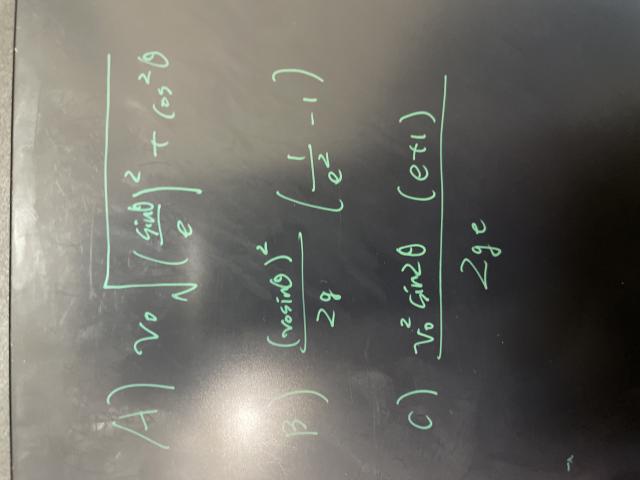 A) v₀ √((sinθ/e)² + cos²θ)
B) (v₀sinθ)²/2g (1/e² - 1)
C) v₀² sin2θ (e+1)/2ge